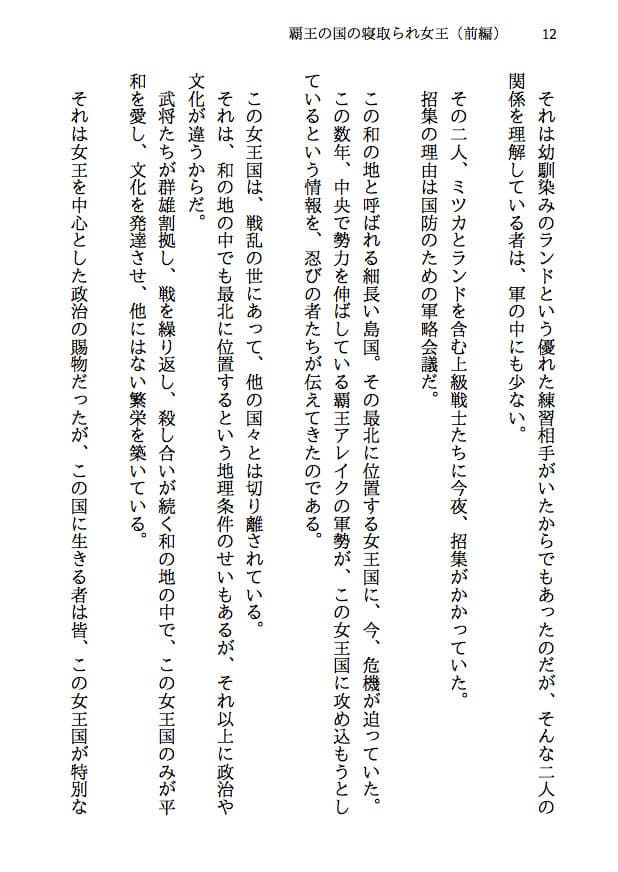 覇王の国の寝取られ女王（前編） 12
それは幼馴染みのランドという優れた練習相手がいたからでもあったのだが、そんな二人の
関係を理解している者は、軍の中にも少ない。
その二人、ミツカとランドを含む上級戦士たちに今夜、招集がかかっていた。
招集の理由は国防のための軍略会議だ。
この和の地と呼ばれる細長い島国。その最北に位置する女王国に、今、危機が迫っていた。
この数年、中央で勢力を伸ばしている覇王アレイクの軍勢が、この女王国に攻め込もうとし
ているという情報を、忍びの者たちが伝えてきたのである。
この女王国は、戦乱の世にあって、他の国々とは切り離されている。
それは、和の地の中でも最北に位置するという地理条件のせいもあるが、それ以上に政治や
文化が違うからだ。
武将たちが群雄割拠し、戦を繰り返し、殺し合いが続く和の地の中で、この女王国のみが平
和を愛し、文化を発達させ、他にはない繁栄を築いている。
それは女王を中心とした政治の賜物だったが、この国に生きる者は皆、この女王国が特別な